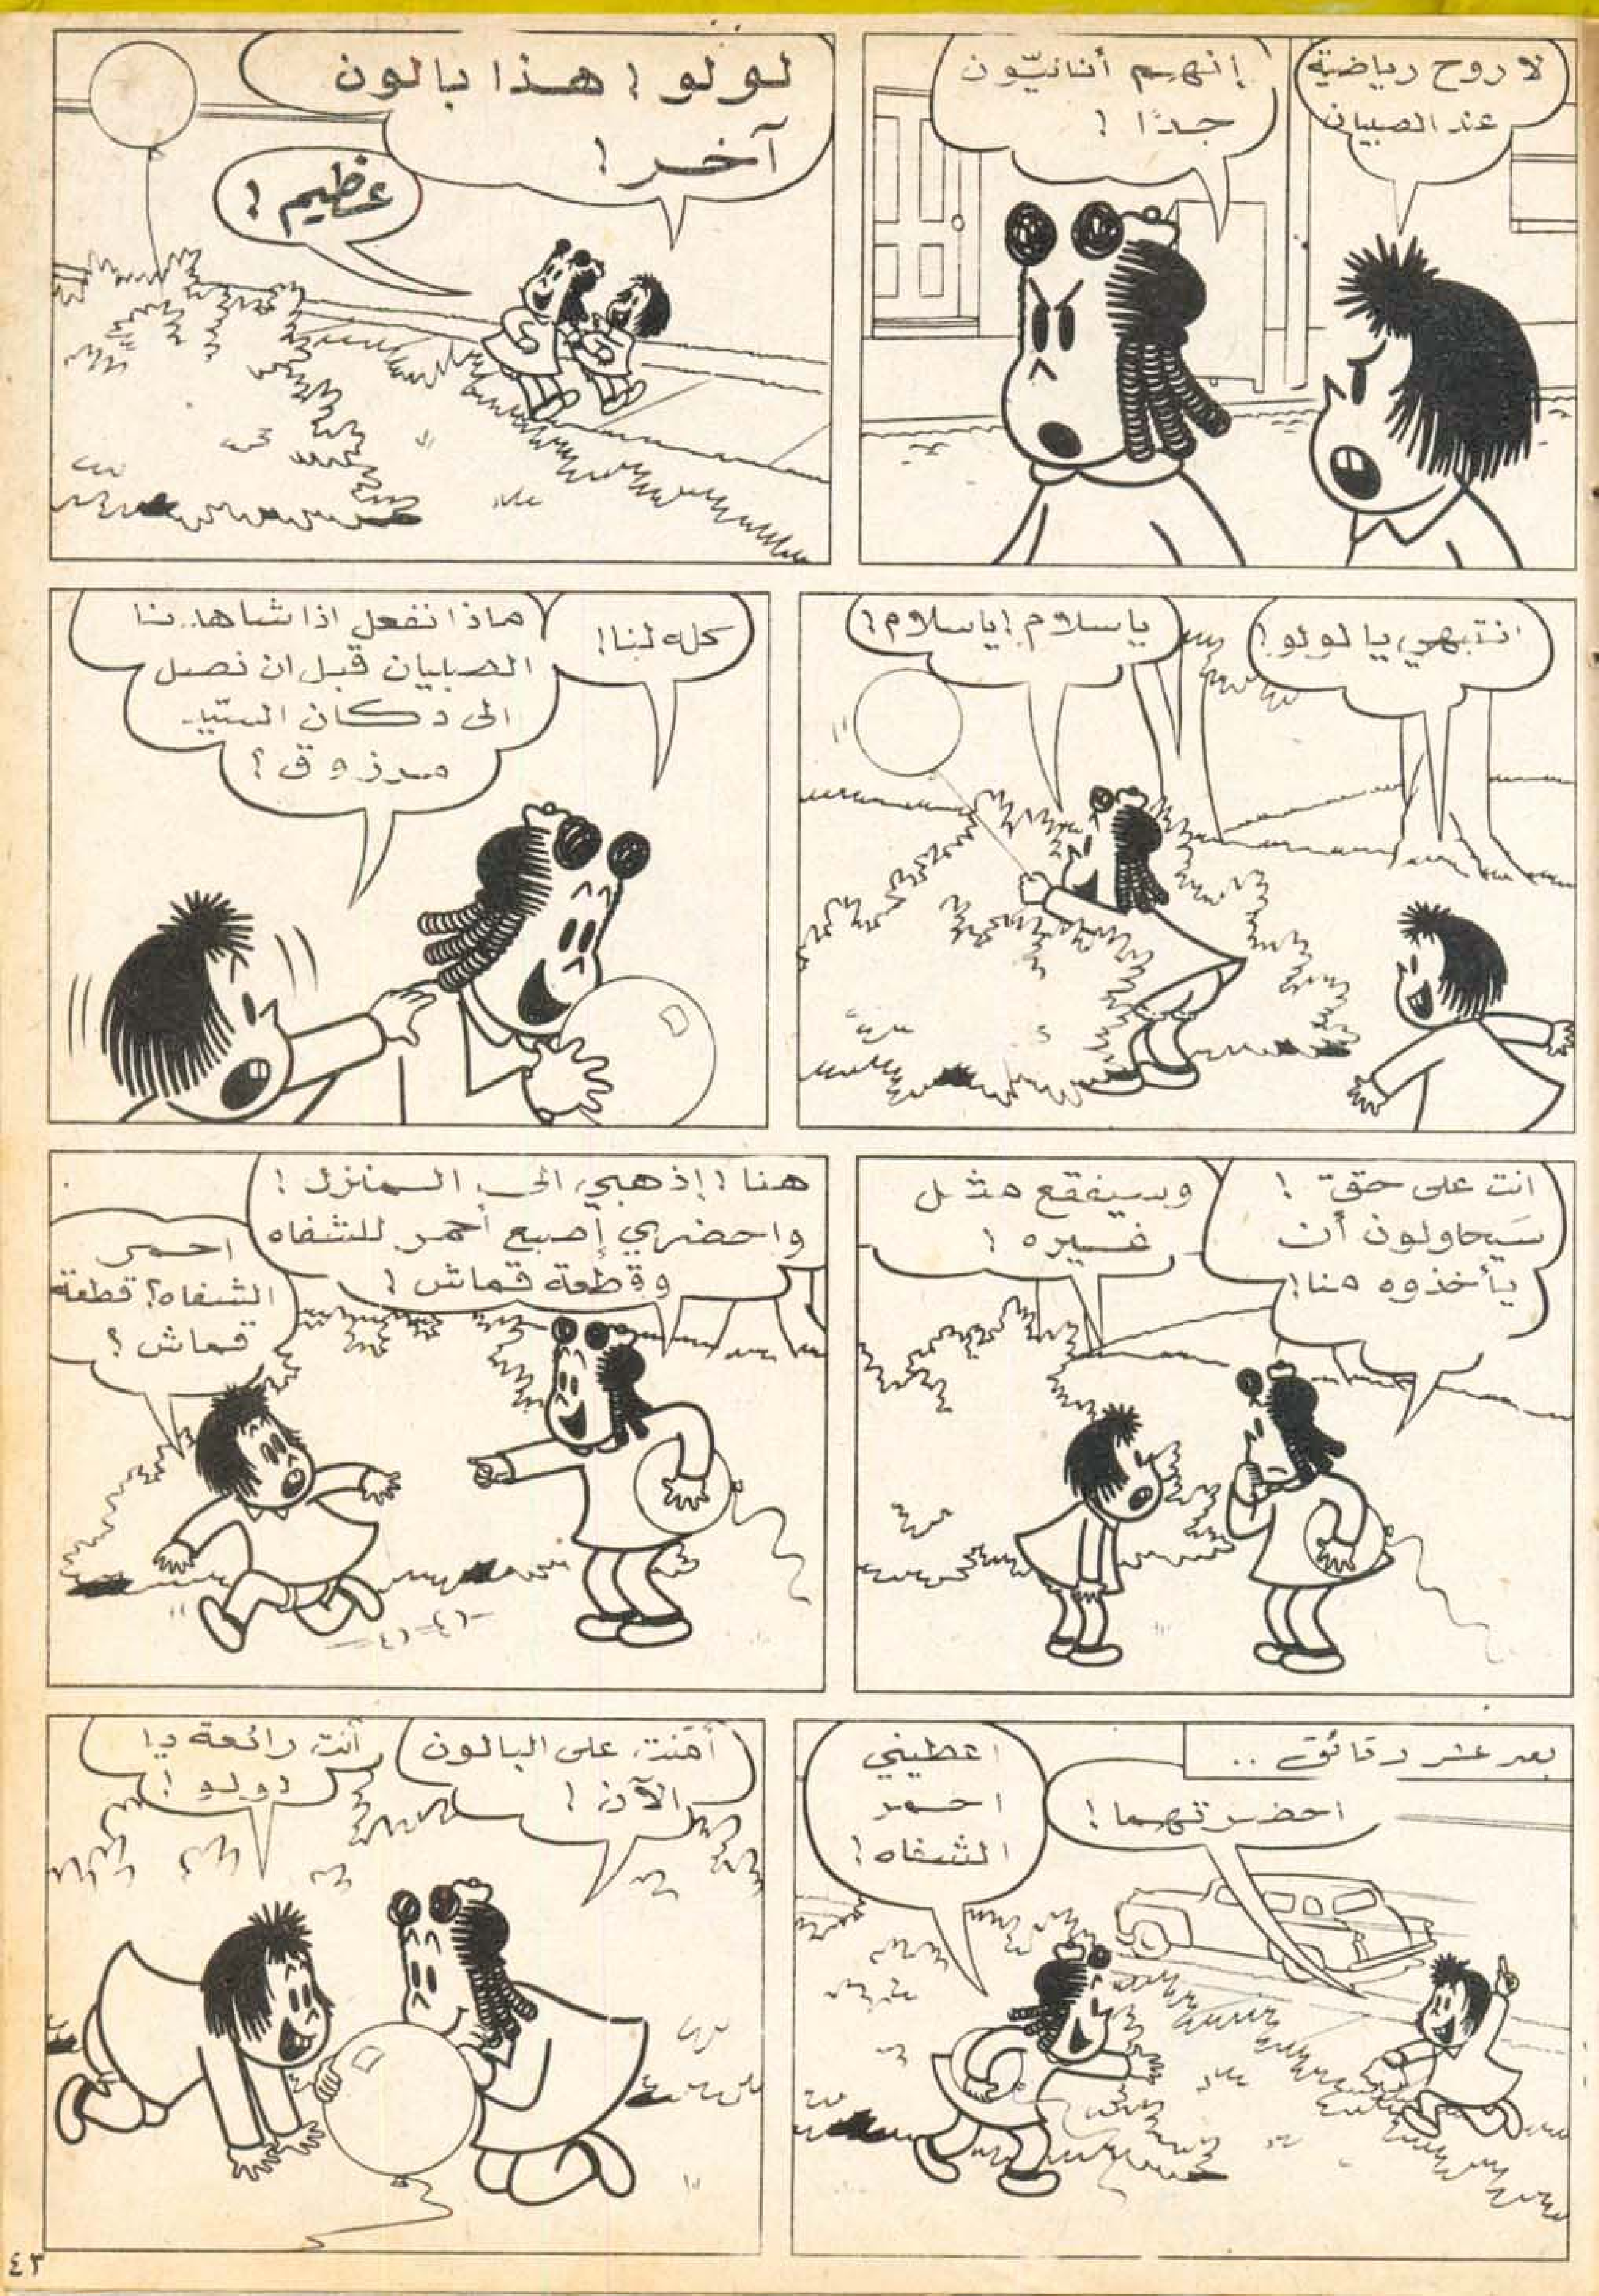 لا روح رياضية
عند الصبيان
إنهم أنانيّون
جدًا !
لولو ! هذا بالون
آخر !
عظيم !
انتبهي يا لولو !
يا سلام ! يا سلام !
كله لنا !
ماذا نفعل اذا شاهدنا
الصبيان قبل ان نصل
الى دكان السيّد
مرزوق ؟
انت على حقّ !
سَيحاولون أن
يأخذوه منا !
وسيفقع مثل
غيره !
هنا ! إذهبي الى المنزل !
واحضري إصبع أحمر للشفاه
وقطعة قماش !
احمر
الشفاه ؟ قطعة
قماش ؟
بعد عشر دقائق ..
احضرتهما !
اعطيني
احمر
الشفاه !
أمّنت على البالون
الآن !
أنت رائعة يا
لولو !
٤٣